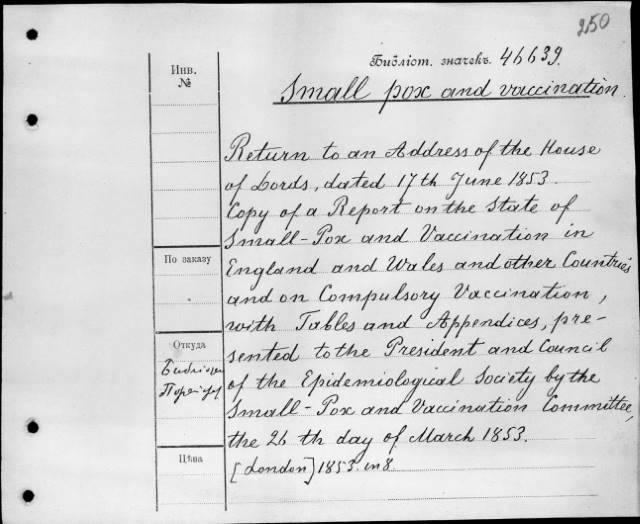 250
Библіот. значекъ. 46639.
Small pox and vaccination.
Инв.
№
Return to an Address of the House
of Lords, dated 17th June 1853.
Copy of a Report on the State of
Small-Pox and Vaccination in
По заказу
England and Wales and other Countries
and on Compulsory Vaccination,
with Tables and Appendices, pre-
Откуда
sented to the President and Council
of the Epidemiological Society by the
Small-Pox and Vaccination Committee,
the 26th day of March 1853.
Цѣна
[London] 1853. in 8.